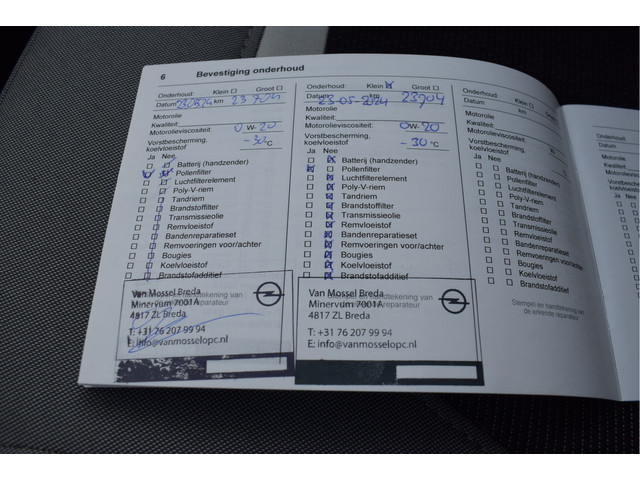 6 Bevestiging onderhoud
Onderhoud: Klein Groot
Datum 230524 km 23704
Motorolie
Kwaliteit:
Motorolieviscositeit: 0W-20
Vorstbescherming,
koelvloeistof -30°C
Ja Nee
Batterij (handzender)
Pollenfilter
Luchtfilterelement
Poly-V-riem
Tandriem
Brandstoffilter
Transmissieolie
Remvloeistof
Bandenreparatieset
Remvoeringen voor/achter
Bougies
Koelvloeistof
Brandstofadditief
Van Mossel Breda
Minervum 7001A
4817 ZL Breda
T: +31 76 207 99 94
E: info@vanmosselopc.nl
Onderhoud: Klein Groot
Datum 23-05-2024 km 23704
Motorolie
Kwaliteit:
Motorolieviscositeit: 0W-20
Vorstbescherming,
koelvloeistof -30°C
Ja Nee
Batterij (handzender)
Pollenfilter
Luchtfilterelement
Poly-V-riem
Tandriem
Brandstoffilter
Transmissieolie
Remvloeistof
Bandenreparatieset
Remvoeringen voor/achter
Bougies
Koelvloeistof
Brandstofadditief
Van Mossel Breda
Minervum 7001A
4817 ZL Breda
T: +31 76 207 99 94
E: info@vanmosselopc.nl
Onderhoud: Klein Groot
Datum km
Motorolie
Kwaliteit:
Motorolieviscositeit: W-
Vorstbescherming,
koelvloeistof °C
Ja Nee
Batterij (handzender)
Pollenfilter
Luchtfilterelement
Poly-V-riem
Tandriem
Brandstoffilter
Transmissieolie
Remvloeistof
Bandenreparatieset
Remvoeringen voor/achter
Bougies
Koelvloeistof
Brandstofadditief
Stempel en handtekening van
de erkende reparateur